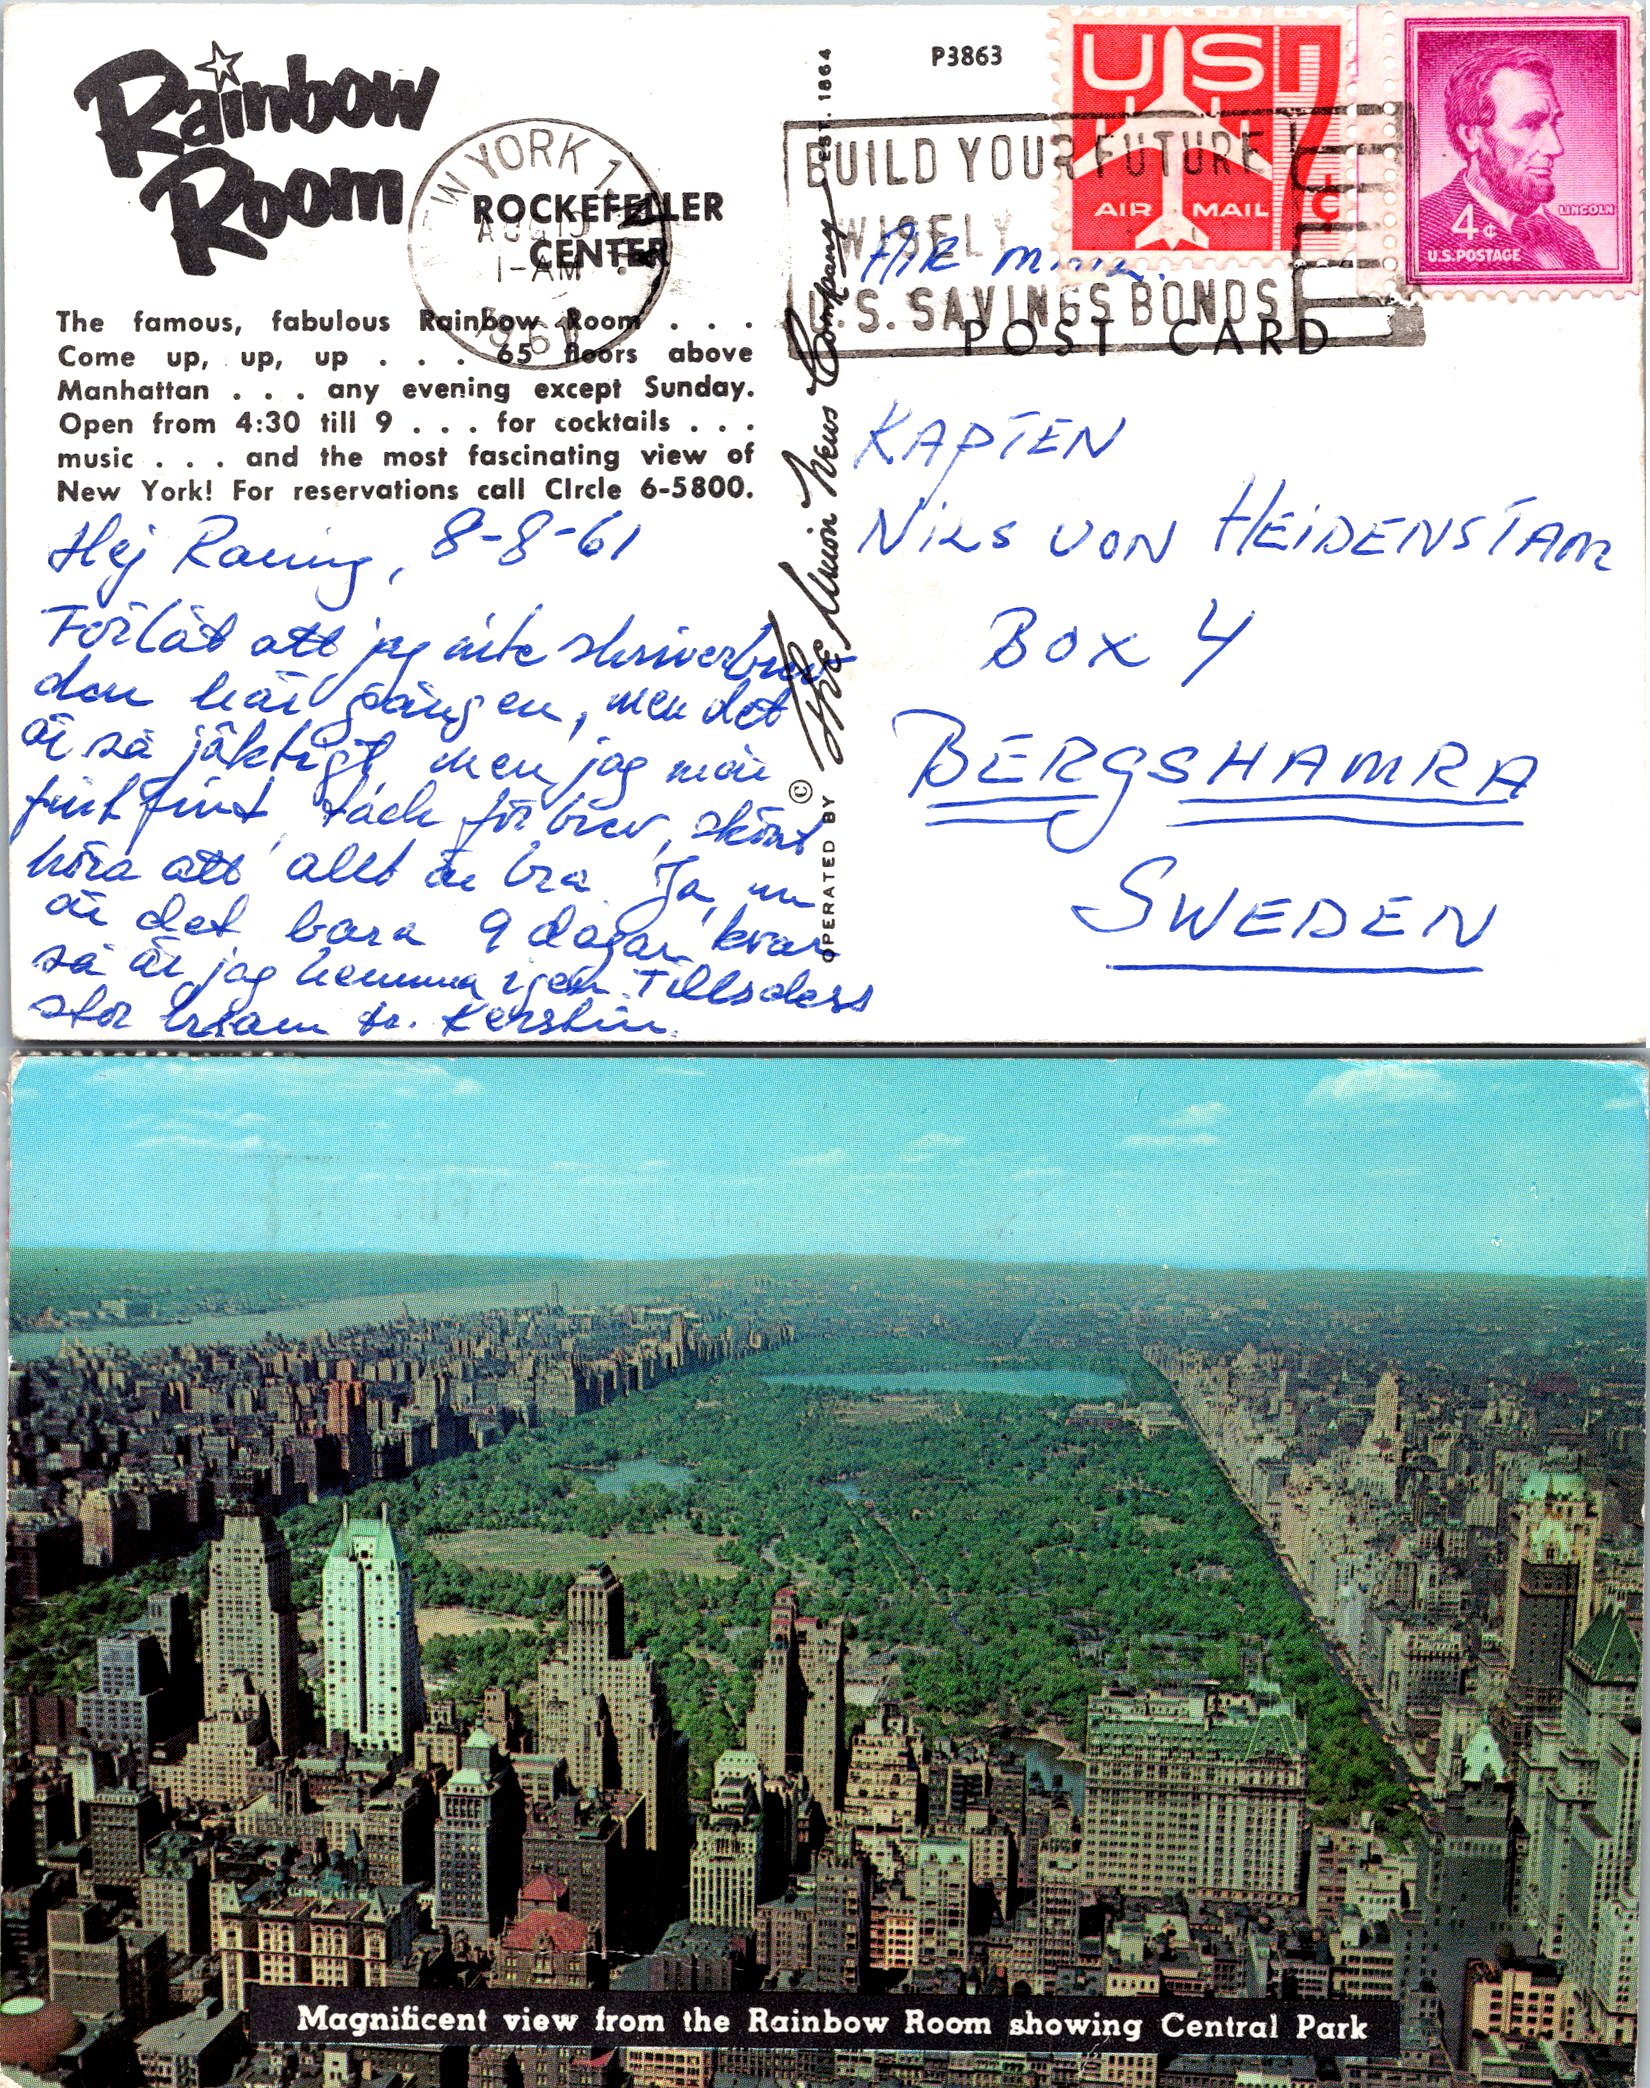 Rainbow
Room
ROCKEFELLER
CENTER
NEW YORK 1, N.Y.
AUG 10
1-AM
1961
The famous, fabulous Rainbow Room . . .
Come up, up, up . . . 65 floors above
Manhattan . . . any evening except Sunday.
Open from 4:30 till 9 . . . for cocktails . . .
music . . . and the most fascinating view of
New York! For reservations call CIrcle 6-5800.
Hej 8-8-61
Förlåt att jag inte skriver brev
den här gången, men det
är så jäktigt, men jag mår
fint fint, tack för brev, skönt
höra att allt är bra. Ja, nu
är det bara 9 dagar kvar
så är jag hemma igen. Tillsdess
stor kram fr. Kerstin.
OPERATED BY © THE Union News Company EST. 1864
P3863
US
7c
AIR MAIL
LINCOLN
4¢
U.S. POSTAGE
BUILD YOUR FUTURE
WISELY
U.S. SAVINGS BONDS
AIR MAIL
POST CARD
KAPTEN
NILS VON HEIDENSTAM
BOX 4
BERGSHAMRA
SWEDEN
Magnificent view from the Rainbow Room showing Central Park